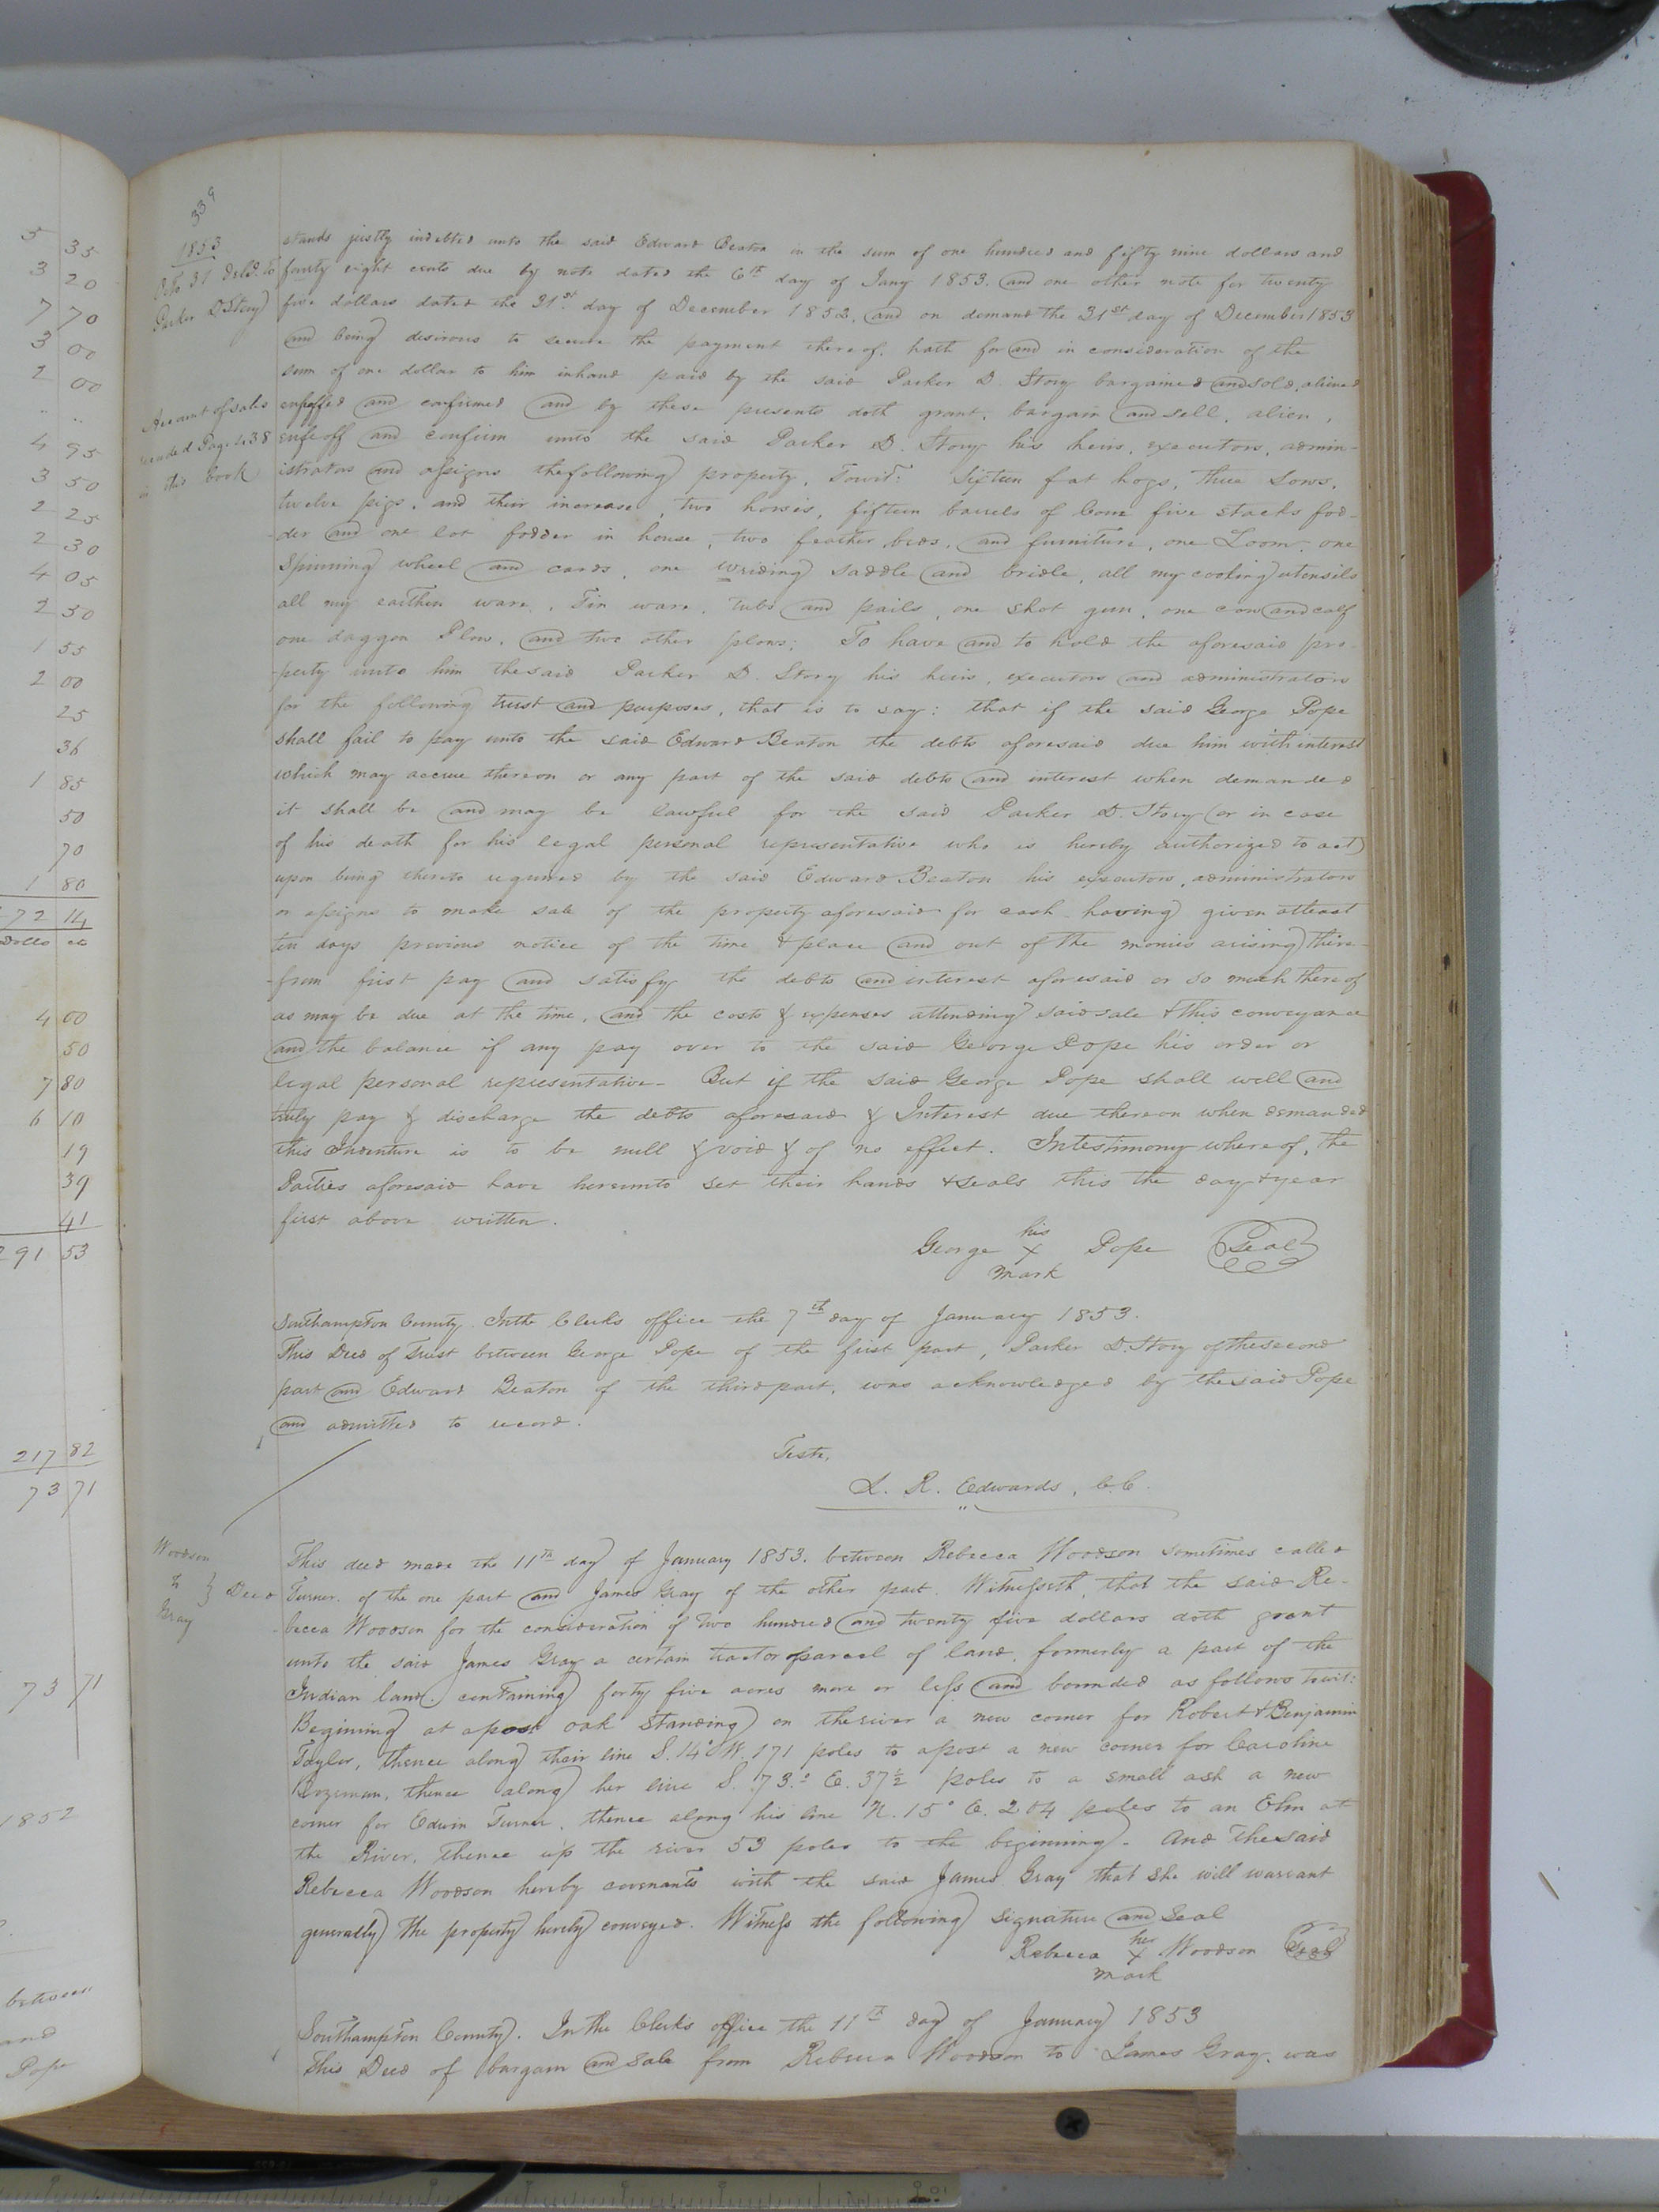 5 35
3 20
7 70
3 00
2 00
" "
4 95
3 50
2 25
2 30
4 05
2 50
1 55
2 00
25
36
1 85
50
70
1 80
72 14
Dolls cts
4 00
50
7 80
6 10
19
39
41
291 53
217 82
73 71
73 71
1852
between
and
Pope
339
1853
Octo 31 deld. to
Parker D Story
Account of sales
recorded Page 438
in this book
stands justly indebted unto the said Edward Beaton in the sum of one hundred and fifty nine dollars and
fourty eight cents due by note dated the 6th day of Jany 1853. and one other note for twenty
five dollars dated the 31st. day of December 1852, and on demand the 31st day of December 1853
and being desirous to secure the payment thereof, hath for and in consideration of the
sum of one dollar to him inhand paid by the said Parker D. Story bargained and sold, aliened
enfeffed and confirmed and by these presents doth grant, bargain and sell, alien,
enfeoff and confirm unto the said Parker D. Story his heirs, executors, admin-
istrators and assigns the following property, Towit: Sixteen fat hogs, three Sows,
twelve pigs, and their increase, two horses, fifteen barrels of Corn five stacks fod-
-der and one lot fodder in house, two feather beds, and furniture, one Loom, one
Spinning wheel and cards, one wriding saddle and bridle, all my cooking utensils
all my earthen ware, Tin ware, tubs and pails, one shot gun, one cow and calf
one daggon Plow, and two other plows; To have and to hold the aforesaid pro
-perty unto him the said Parker D. Story his heirs, executors and administrators
for the following trust and purposes, that is to say: that if the said George Pope
shall fail to pay unto the said Edward Beaton the debts aforesaid due him with interest
which may accrue thereon or any part of the said debts and interest when demanded
it shall be and may be lawful for the said Parker D. Story (or in case
of his death for his legal personal representative who is hereby authorized to act)
upon being thereto required by the said Edward Beaton his executors, administrators
or assigns to make sale of the property aforesaid for cash having given atleast
ten days previous notice of the time & place and out of the monies arising there-
-from first pay and satisfy the debts and interest aforesaid or so much thereof
as may be due at the time, and the costs & expenses attending said sale & this conveyance
and the balance if any pay over to the said George Pope his order or
legal personal representative- But if the said George Pope shall well and
truly pay & discharge the debts aforesaid & Interest due thereon when demanded
this Indenture is to be null & void & of no effect. Intestimony whereof, the
Parties aforesaid have hereunto set their hands & seals this the day & year
first above written.
his
George X Pope Seal
mark
Southampton County. Inthe Clerks office the 7th day of January 1853.
This Deed of Trust between George Pope of the first part, Parker D. Story of the second
part and Edward Beaton of the third part, was acknowledged by the said Pope
and admitted to record.
Teste,
L. R. Edwards, C.C.
Woodson
to } Deed
Gray
This deed made the 11th day of January 1853. between Rebecca Woodson sometimes called
Turner. of the one part and James Gray of the other part. Witnesseth, that the said Re-
-becca Woodson for the consideration of two hundred and twenty five dollars doth grant
unto the said James Gray a certain tract or parcel of land, formerly a part of the
Indian land. containing forty five acres more or less and bounded as follows towit:
Begining at a post oak standing on the river a new corner for Robert & Benjamin
Taylor, thence along their line S. 14° W. 171 poles to a post a new corner for Caroline
Bozeman, thence along her line S. 73.° E. 37½ poles to a small ash a new
corner for Edwin Turner, thence along his line N. 15° E. 204 poles to an Elm at
the River, thence up the river 53 poles to the beginning- And the said
Rebecca Woodson hereby covenants with the said James Gray that she will warrant
generally the property hereby conveyed. Witness the following signature and seal
her
Rebecca X Woodson Seal
mark
Southampton County. In the Clerks office the 11th day of January 1853
This Deed of bargain and sale from Rebecca Woodson to James Gray. was